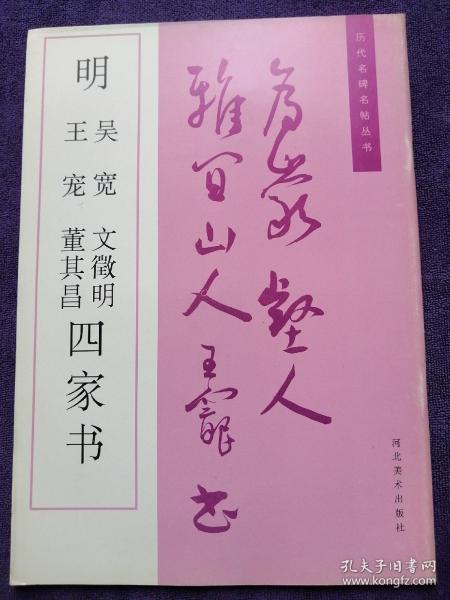 历代名碑名帖丛书
雅宜山人王寵書
明
吴宽 文徵明
王宠 董其昌
四家书
河北美术出版社
孔夫子旧书网
www.kongfz.com